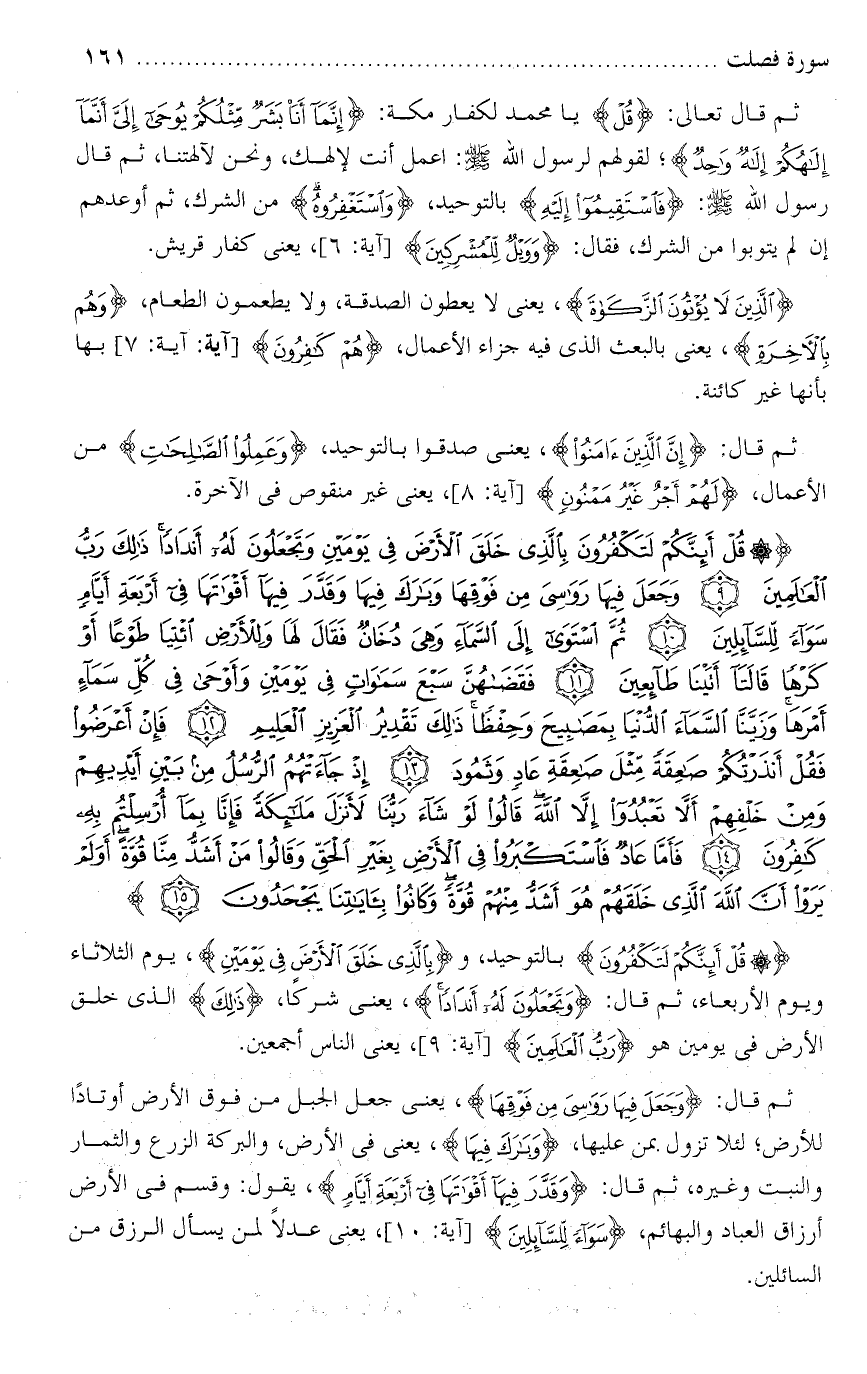 سورة فصلت ............................................................ ١٦١
ثم قال تعالى: ﴿قُلْ﴾ يا محمد لكفار مكة: ﴿إِنَّمَآ أَنَا۠ بَشَرٌ مِّثْلُكُمْ يُوحَىٰٓ إِلَىَّ أَنَّمَآ
إِلَـٰهُكُمْ إِلَـٰهٌ وَٰحِدٌ﴾؛ لقولهم لرسول الله ﷺ: اعمل أنت لإلهك، ونحن لآلهتنا، ثم قال
رسول الله ﷺ: ﴿فَٱسْتَقِيمُوٓا۟ إِلَيْهِ﴾ بالتوحيد، ﴿وَٱسْتَغْفِرُوهُ ۗ﴾ من الشرك، ثم أوعدهم
إن لم يتوبوا من الشرك، فقال: ﴿وَوَيْلٌ لِّلْمُشْرِكِينَ﴾ [آية: ٦]، يعنى كفار قريش.
﴿ٱلَّذِينَ لَا يُؤْتُونَ ٱلزَّكَوٰةَ﴾، يعنى لا يعطون الصدقة، ولا يطعمون الطعام، ﴿وَهُم
بِٱلْـَٔاخِرَةِ﴾، يعنى بالبعث الذى فيه جزاء الأعمال، ﴿هُمْ كَـٰفِرُونَ﴾ [آية: آية: ٧] بها
بأنها غير كائنة.
ثم قال: ﴿إِنَّ ٱلَّذِينَ ءَامَنُوا۟﴾، يعنى صدقوا بالتوحيد، ﴿وَعَمِلُوا۟ ٱلصَّـٰلِحَـٰتِ﴾ من
الأعمال، ﴿لَهُمْ أَجْرٌ غَيْرُ مَمْنُونٍ﴾ [آية: ٨]، يعنى غير منقوص فى الآخرة.
﴿۞ قُلْ أَئِنَّكُمْ لَتَكْفُرُونَ بِٱلَّذِى خَلَقَ ٱلْأَرْضَ فِى يَوْمَيْنِ وَتَجْعَلُونَ لَهُۥٓ أَندَادًا ۚ ذَٰلِكَ رَبُّ
ٱلْعَـٰلَمِينَ ٩ وَجَعَلَ فِيهَا رَوَٰسِىَ مِن فَوْقِهَا وَبَـٰرَكَ فِيهَا وَقَدَّرَ فِيهَآ أَقْوَٰتَهَا فِىٓ أَرْبَعَةِ أَيَّامٍ
سَوَآءً لِّلسَّآئِلِينَ ١٠ ثُمَّ ٱسْتَوَىٰٓ إِلَى ٱلسَّمَآءِ وَهِىَ دُخَانٌ فَقَالَ لَهَا وَلِلْأَرْضِ ٱئْتِيَا طَوْعًا أَوْ
كَرْهًا قَالَتَآ أَتَيْنَا طَآئِعِينَ ١١ فَقَضَىٰهُنَّ سَبْعَ سَمَـٰوَاتٍ فِى يَوْمَيْنِ وَأَوْحَىٰ فِى كُلِّ سَمَآءٍ
أَمْرَهَا ۚ وَزَيَّنَّا ٱلسَّمَآءَ ٱلدُّنْيَا بِمَصَـٰبِيحَ وَحِفْظًا ۚ ذَٰلِكَ تَقْدِيرُ ٱلْعَزِيزِ ٱلْعَلِيمِ ١٢ فَإِنْ أَعْرَضُوا۟
فَقُلْ أَنذَرْتُكُمْ صَـٰعِقَةً مِّثْلَ صَـٰعِقَةِ عَادٍ وَثَمُودَ ١٣ إِذْ جَآءَتْهُمُ ٱلرُّسُلُ مِنۢ بَيْنِ أَيْدِيهِمْ
وَمِنْ خَلْفِهِمْ أَلَّا تَعْبُدُوٓا۟ إِلَّا ٱللَّهَ ۖ قَالُوا۟ لَوْ شَآءَ رَبُّنَا لَأَنزَلَ مَلَـٰٓئِكَةً فَإِنَّا بِمَآ أُرْسِلْتُم بِهِۦ
كَـٰفِرُونَ ١٤ فَأَمَّا عَادٌ فَٱسْتَكْبَرُوا۟ فِى ٱلْأَرْضِ بِغَيْرِ ٱلْحَقِّ وَقَالُوا۟ مَنْ أَشَدُّ مِنَّا قُوَّةً ۖ أَوَلَمْ
يَرَوْا۟ أَنَّ ٱللَّهَ ٱلَّذِى خَلَقَهُمْ هُوَ أَشَدُّ مِنْهُمْ قُوَّةً ۖ وَكَانُوا۟ بِـَٔايَـٰتِنَا يَجْحَدُونَ ١٥ ﴾
﴿۞ قُلْ أَئِنَّكُمْ لَتَكْفُرُونَ﴾ بالتوحيد، و﴿بِٱلَّذِى خَلَقَ ٱلْأَرْضَ فِى يَوْمَيْنِ﴾، يوم الثلاثاء
ويوم الأربعاء، ثم قال: ﴿وَتَجْعَلُونَ لَهُۥٓ أَندَادًا ۚ﴾، يعنى شركًا، ﴿ذَٰلِكَ﴾ الذى خلق
الأرض فى يومين هو ﴿رَبُّ ٱلْعَـٰلَمِينَ﴾ [آية: ٩]، يعنى الناس أجمعين.
ثم قال: ﴿وَجَعَلَ فِيهَا رَوَٰسِىَ مِن فَوْقِهَا﴾، يعنى جعل الجبل من فوق الأرض أوتادًا
للأرض؛ لئلا تزول بمن عليها، ﴿وَبَـٰرَكَ فِيهَا﴾، يعنى فى الأرض، والبركة الزرع والثمار
والنبت وغيره، ثم قال: ﴿وَقَدَّرَ فِيهَآ أَقْوَٰتَهَا فِىٓ أَرْبَعَةِ أَيَّامٍ﴾، يقول: وقسم فى الأرض
أرزاق العباد والبهائم، ﴿سَوَآءً لِّلسَّآئِلِينَ﴾ [آية: ١٠]، يعنى عدلاً لمن يسأل الرزق من
السائلين.